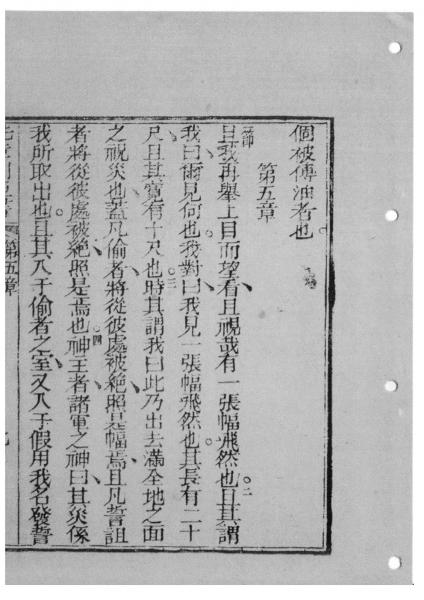 個被傅油者也
第五章
節
且我再舉上目而望看且視哉有一張幅飛然也。二且其謂
我曰爾見何也我對曰我見一張幅飛然也。其長有二十
尺且其寬有十尺也。三時其謂我曰此乃出去滿全地之面
之祝災也蓋凡偷者將從彼處被絶照是幅焉且凡誓詛
者將從彼處被絶照是焉也。四神王者諸軍之神曰其災係
我所取出也。且其入于偷者之室又入于假用我名發誓
第五章